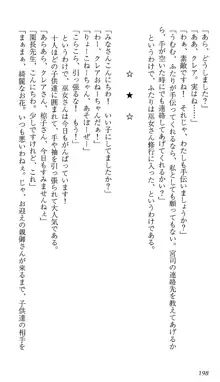 「あら、どうしました?」
「あ、クレア。実は……」
「わぁ、素敵ですわ。それじゃ、わたしも手伝いましょうか?」
「うむむ、ふたりが手伝ってくれるなら、私としても願ってもない。宮司の連絡先を教えてあげるから、手が空いてる時にでも連絡してあげてくれるかい?」
というわけで、ふたりは巫女さん修行に入った、というわけである。
☆ ★ ☆
「みなさんこんにちわー! いい子にしてましたか?」
「わー、クレアおねーちゃんだ!」
「りょーこねーちゃん、あそぼーぜー!」
「こら、引っ張るな!」
というわけで、巫女さんは今日もがんばっています!
十人ほどの子供達に囲まれて、手や袖を引っ張られて大人気である。
「あら、クレアさん、裕子さん。今日もすみませんね」
「園長先生、こんにちわ。少しですけれど、これ、どうぞ」
「まぁまぁ、綺麗なお花。いつも悪いわねぇ」
というわけで、お迎えの親御さんが来るまで、子供達の相手を
198